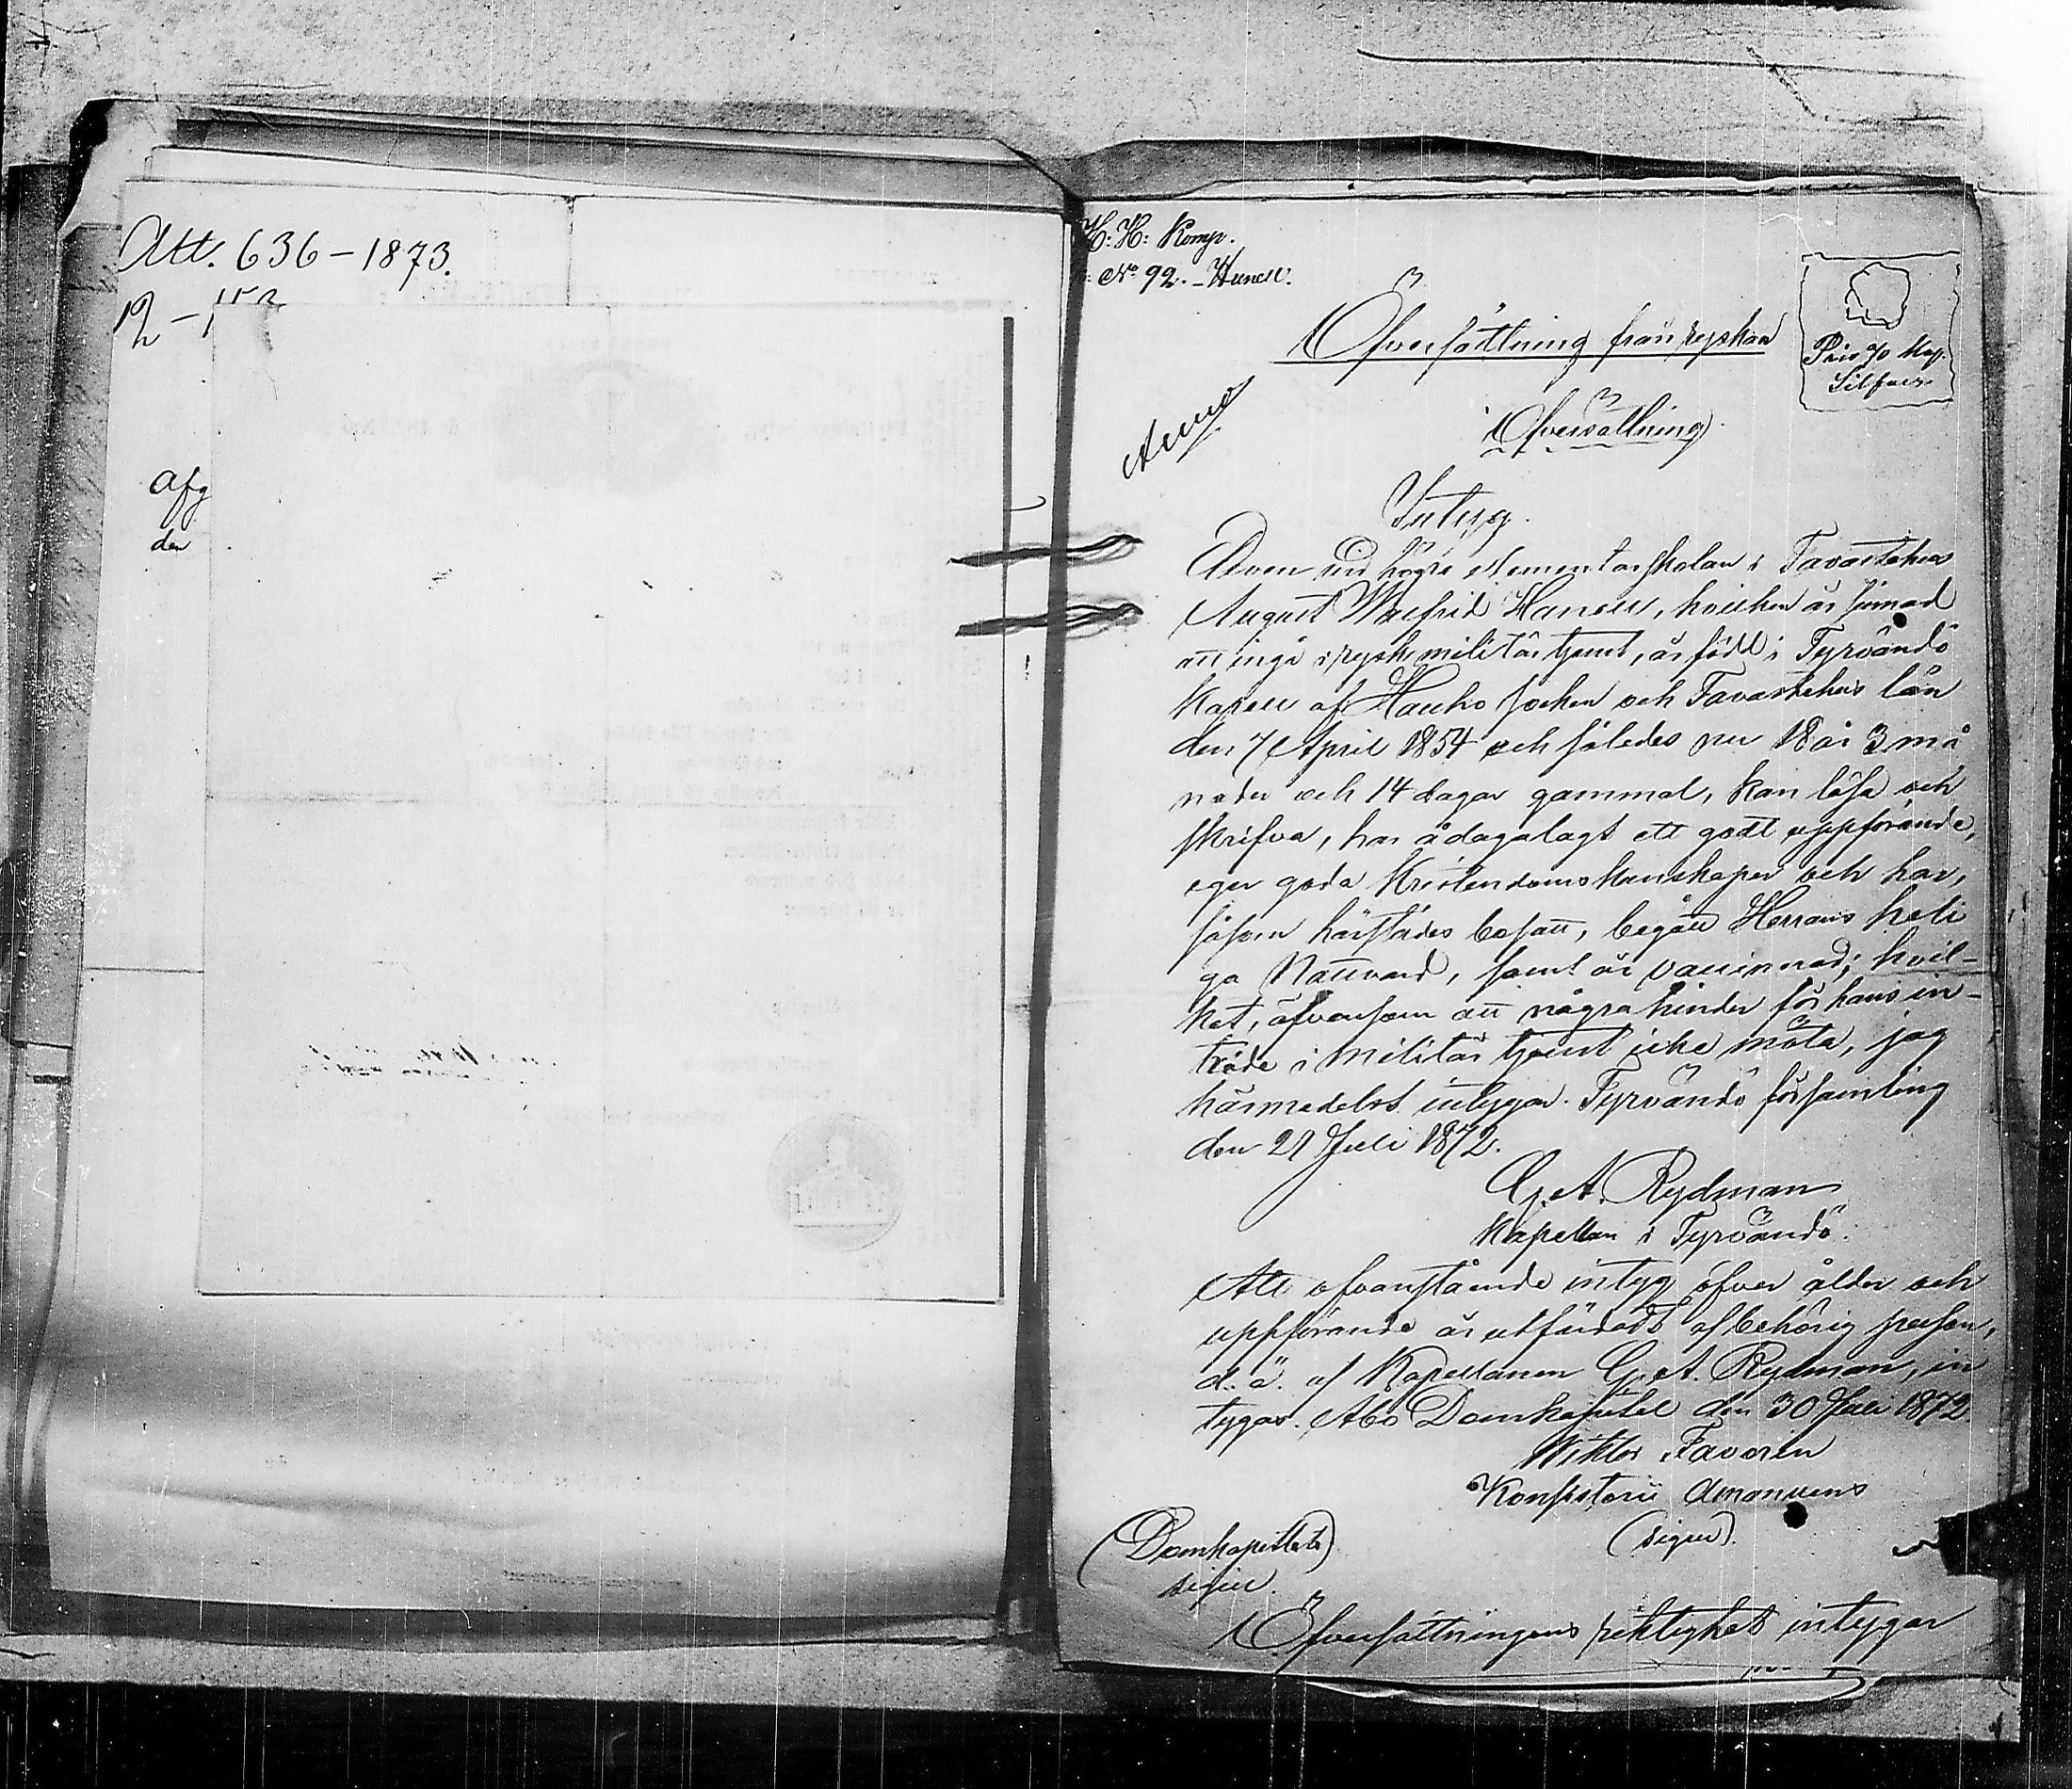 Att. 636 – 1873.
Afg
den
H: H: Komp.
No 92. – Hanell.
Öfversättning från ryskan
Pris 70 Kop.
Silfver.
Öfversättning
Intyg.
Eleven vid högre elementarskolan i Tavastehus
August Walfrid Hanell, hvilken är sinnad
att ingå i rysk militär tjenst, är född i Tyrväntö
Kapell af Hauho socken och Tavastehus län
den 7 April 1854 och således nu 18 år 3 må
nader och 14 dagar gammal, kan läsa och
skrifva, har ådagalagt ett godt uppförande,
eger goda Kristendomskunskaper och har,
såsom härstädes bosatt, begått Herrans heli
ga Nattvard, samt är vaccinerad; hvil-
ket, äfvensom att några hinder för hans in-
träde i militär tjenst icke möta, jag
härmedelst intygar. Tyrväntö församling
den 21 Juli 1872.
G. A. Rydman
Kapellan i Tyrväntö.
Att ofvanstående intyg öfver ålder och
uppförande är utfärdadt af behörig person,
d. ä. af Kapellanen G. A. Rydman, in
tygas. Åbo Domkapitel den 30 Juli 1872
Wiktor Favorin
Konsistorii Amanuens
(Domkapitlets)
sigill.
(sigill).
Öfversättningens riktighet intygar